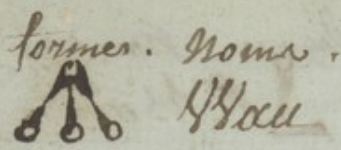 formes. Noms.
VVau